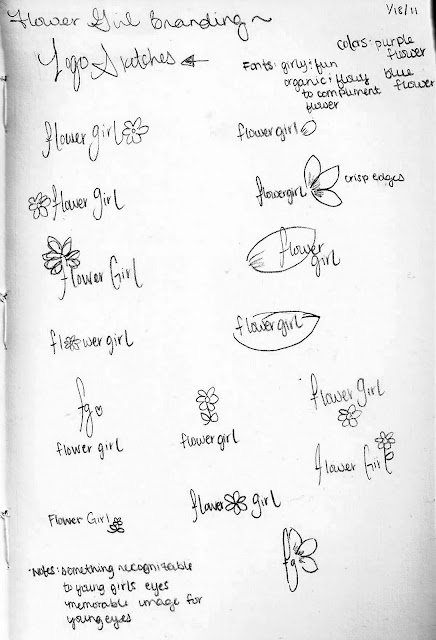 Flower Girl Branding ~
1/18/11
Logo Sketches
Fonts: girly & fun
organic & flowy
to compliment
flower
colors: purple
flower
blue
flower
flower girl
flowergirl
flower girl
flowergirl
crisp edges
flower Girl
flower
girl
fl wer girl
flowergirl
fg
flower girl
flowergirl
flower girl
flower Girl
Flower Girl
flower girl
fg
·Notes: something recognizable
to young girls eyes
memorable image for
young eyes